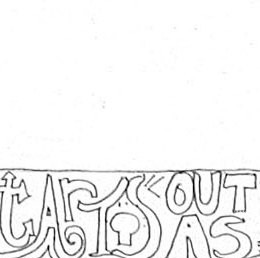 tArTS OUT
AS